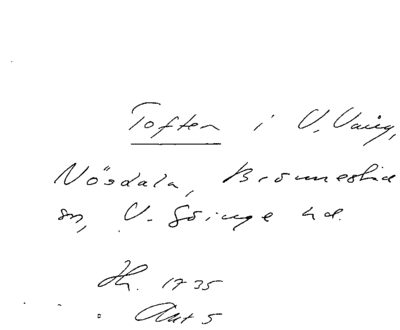 Toften i V. Vång,
Nösdala, Brönnestad
sn, V. Göinge hd.
Jh. 1735
Akt 5